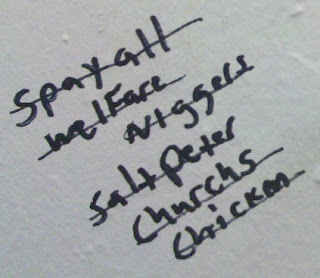 Spay all
welfare
Niggers
Saltpeter
Churchs
Chicken